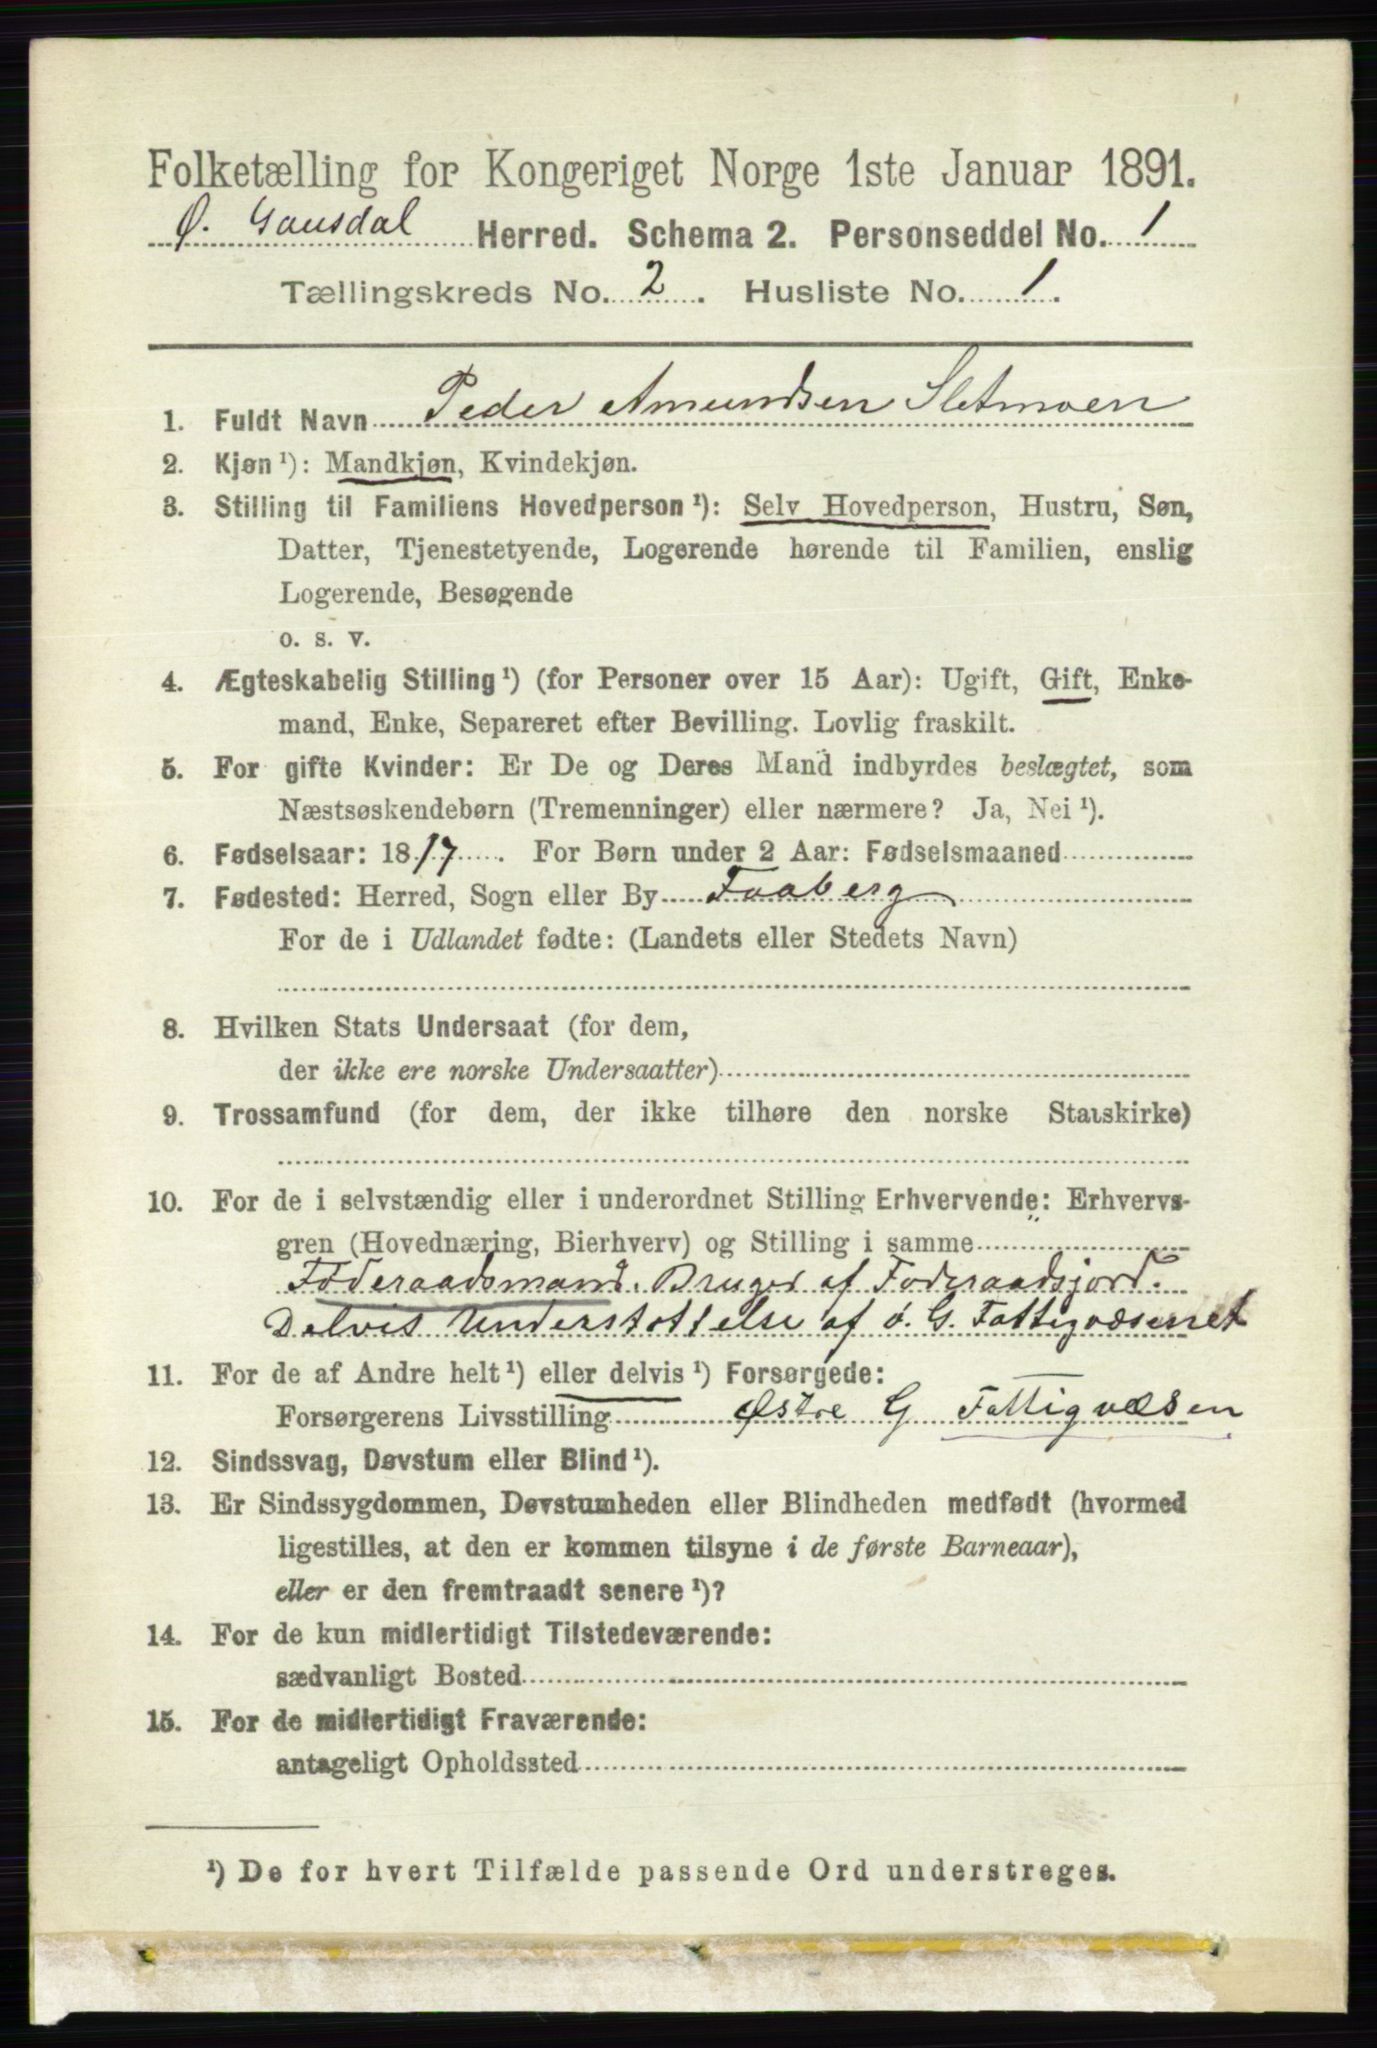 Folketælling for Kongeriget Norge 1ste Januar 1891.
Ø. Gausdal Herred. Schema 2. Personseddel No. 1
Tællingskreds No. 2. Husliste No. 1.
1. Fuldt Navn Peder Amundsen Sletmoen
2. Kjøn ¹): Mandkjøn, Kvindekjøn.
3. Stilling til Familiens Hovedperson ¹): Selv Hovedperson, Hustru, Søn,
Datter, Tjenestetyende, Logerende hørende til Familien, enslig
Logerende, Besøgende
o. s. v.
4. Ægteskabelig Stilling ¹) (for Personer over 15 Aar): Ugift, Gift, Enke-
mand, Enke, Separeret efter Bevilling. Lovlig fraskilt.
5. For gifte Kvinder: Er De og Deres Mand indbyrdes beslægtet, som
Næstsøskendebørn (Tremenninger) eller nærmere? Ja, Nei ¹).
6. Fødselsaar: 1817. For Børn under 2 Aar: Fødselsmaaned
7. Fødested: Herred, Sogn eller By Faaberg
For de i Udlandet fødte: (Landets eller Stedets Navn)
8. Hvilken Stats Undersaat (for dem,
der ikke ere norske Undersaatter)
9. Trossamfund (for dem, der ikke tilhøre den norske Statskirke)
10. For de i selvstændig eller i underordnet Stilling Erhvervende: Erhvervs-
gren (Hovednæring, Bierhverv) og Stilling i samme
Föderaadsmand. Bruger af Foderaadsjord.
Delvis Understøttelse af ö. G. Fattigvæsenet
11. For de af Andre helt ¹) eller delvis ¹) Forsørgede:
Forsørgerens Livsstilling Østre G Fattigvæsen
12. Sindssvag, Døvstum eller Blind ¹).
13. Er Sindssygdommen, Døvstumheden eller Blindheden medfødt (hvormed
ligestilles, at den er kommen tilsyne i de første Barneaar),
eller er den fremtraadt senere ¹)?
14. For de kun midlertidigt Tilstedeværende:
sædvanligt Bosted
15. For de midlertidigt Fraværende:
antageligt Opholdssted
¹) De for hvert Tilfælde passende Ord understreges.